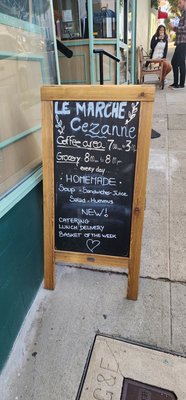 LE MARCHE
Cezanne
Coffee area 7am-3
Grocery 8am-8pm
every day
HOMEMADE
Soup - Sandwiches - Juice
Salad - Hummus
NEW!
CATERING
LUNCH DELIVERY
BASKET OF THE WEEK
G&E